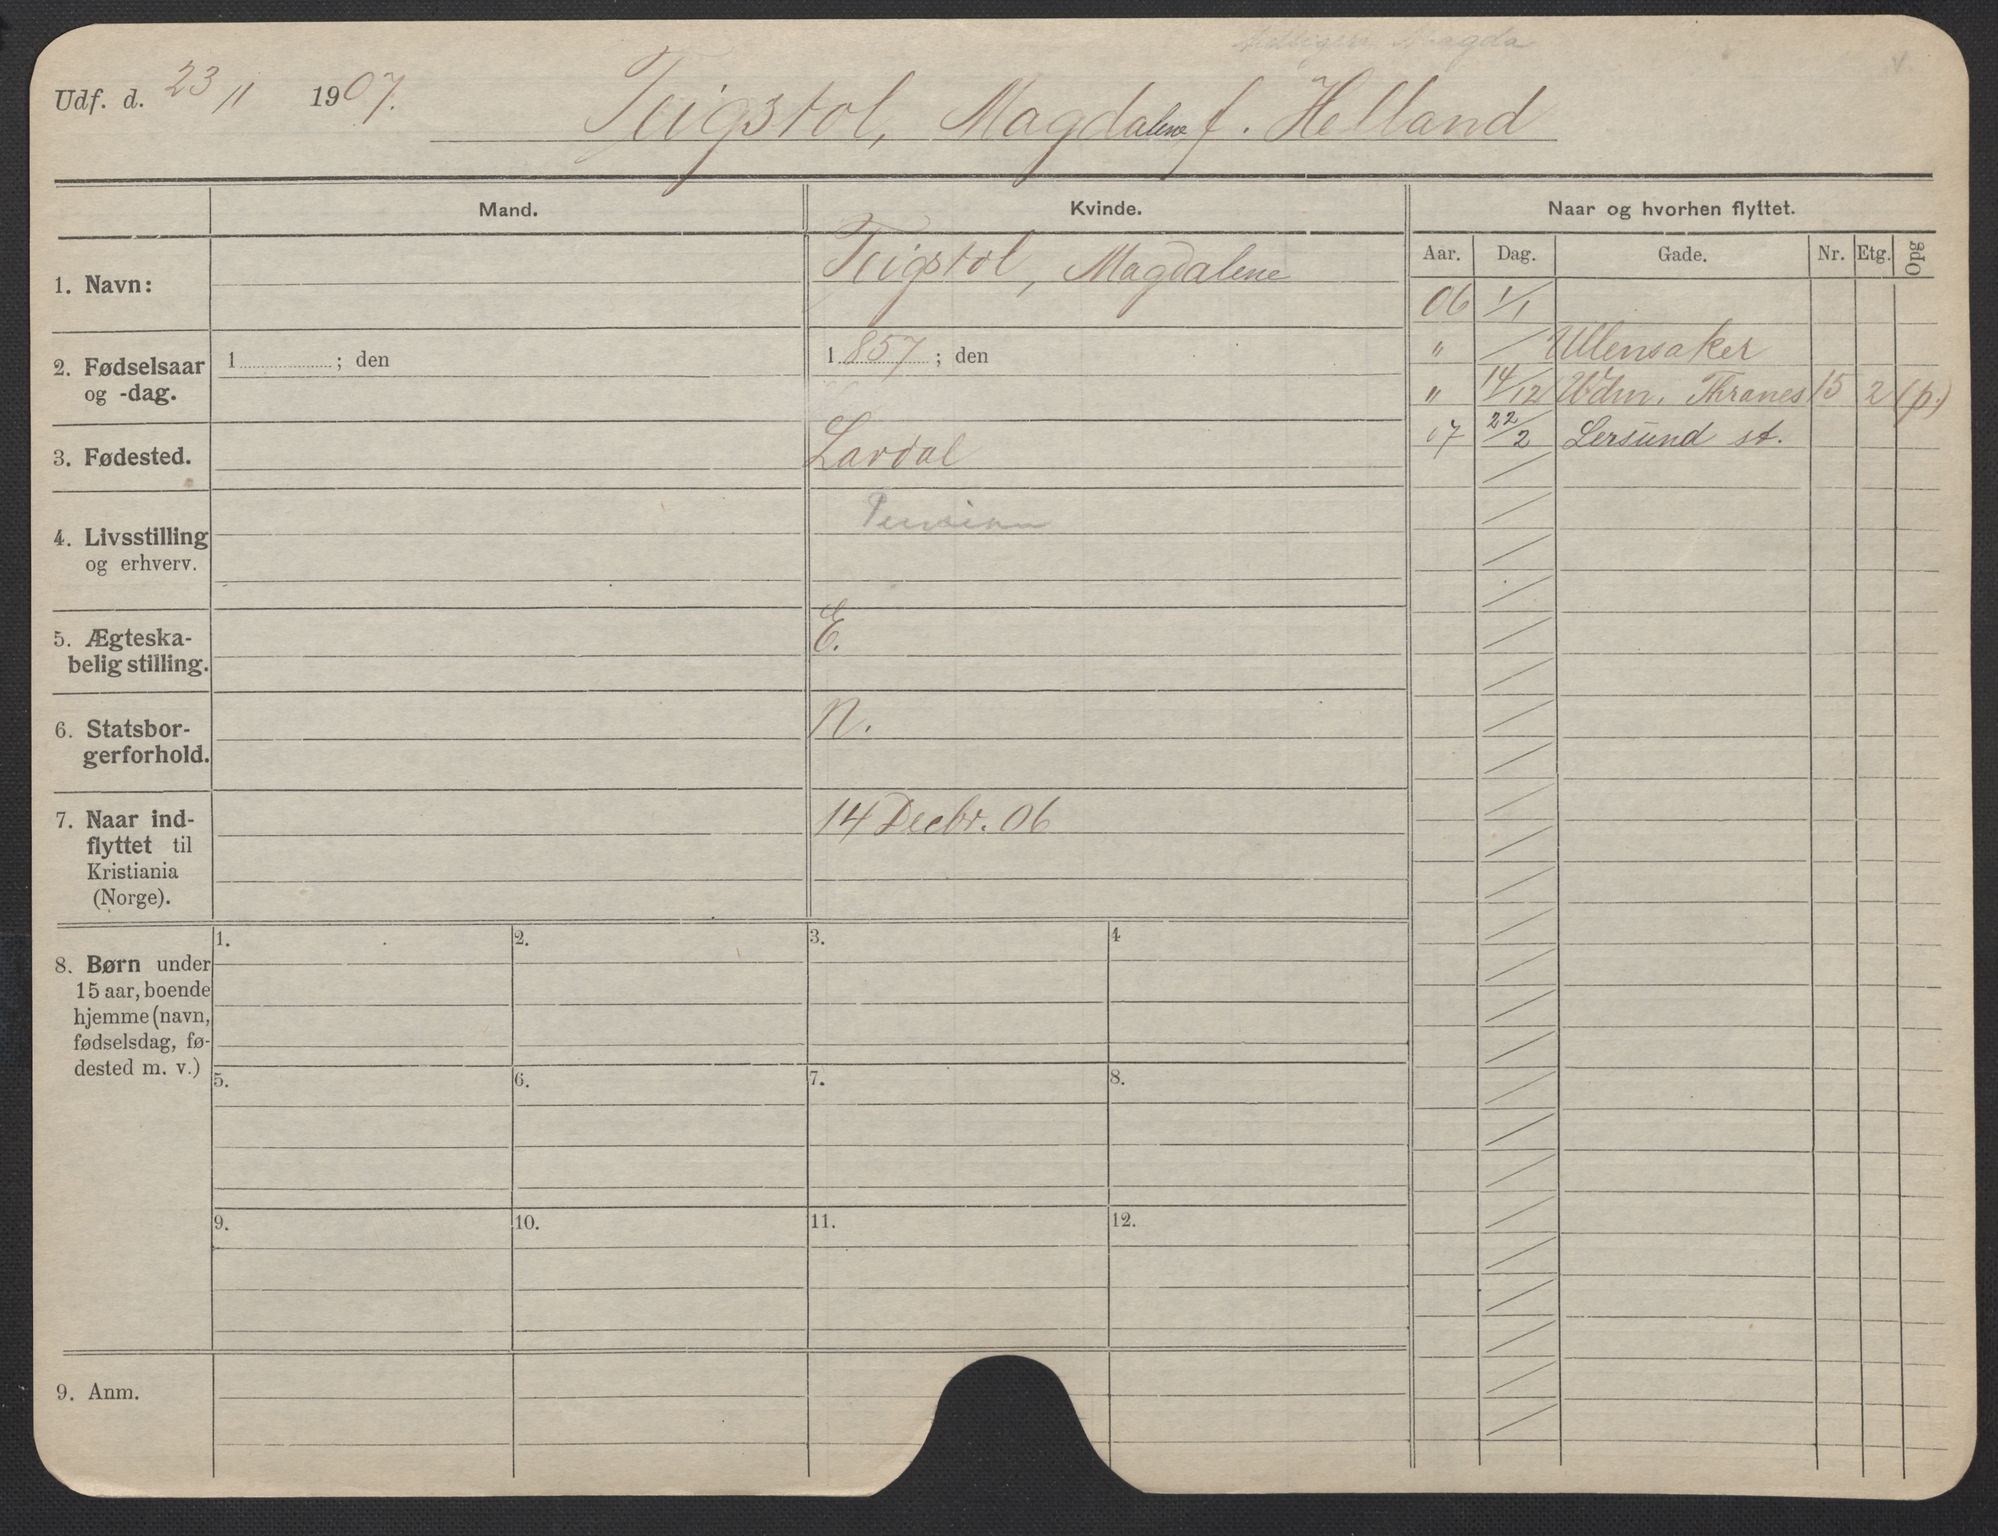 Magda
Udf. d. 23/11 1907. Teigstol, Magdalene f. Helland
Mand. Kvinde. Naar og hvorhen flyttet.
Aar. Dag. Gade. Nr. Etg. Opg
1. Navn: Teigstol, Magdalene
06 1/1
" / Ullensaker
" 14/12 Wdm. Thranes 15 2 (p.)
07 22/2 Lersund st.
2. Fødselsaar og -dag. 1 ; den 1857 ; den
3. Fødested. Lardal
4. Livsstilling og erhverv. Pension
5. Ægteskabelig stilling. E.
6. Statsborgerforhold. N.
7. Naar indflyttet til Kristiania (Norge). 14 Decbr. 06
8. Børn under 15 aar, boende hjemme (navn, fødselsdag, fødested m. v.)
1. 2. 3. 4
5. 6. 7. 8.
9. 10. 11. 12.
9. Anm.